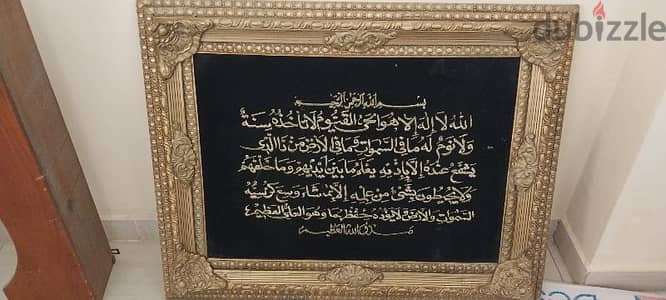 dubizzle
بسم الله الرحمن الرحيم
الله لا إله إلا هو الحي القيوم لا تأخذه سنة
ولا نوم له ما في السموات وما في الأرض من ذا الذي
يشفع عنده إلا بإذنه يعلم ما بين أيديهم وما خلفهم
ولا يحيطون بشيء من علمه إلا بما شاء وسع كرسيه
السموات والأرض ولا يؤده حفظهما وهو العلي العظيم
صدق الله العظيم